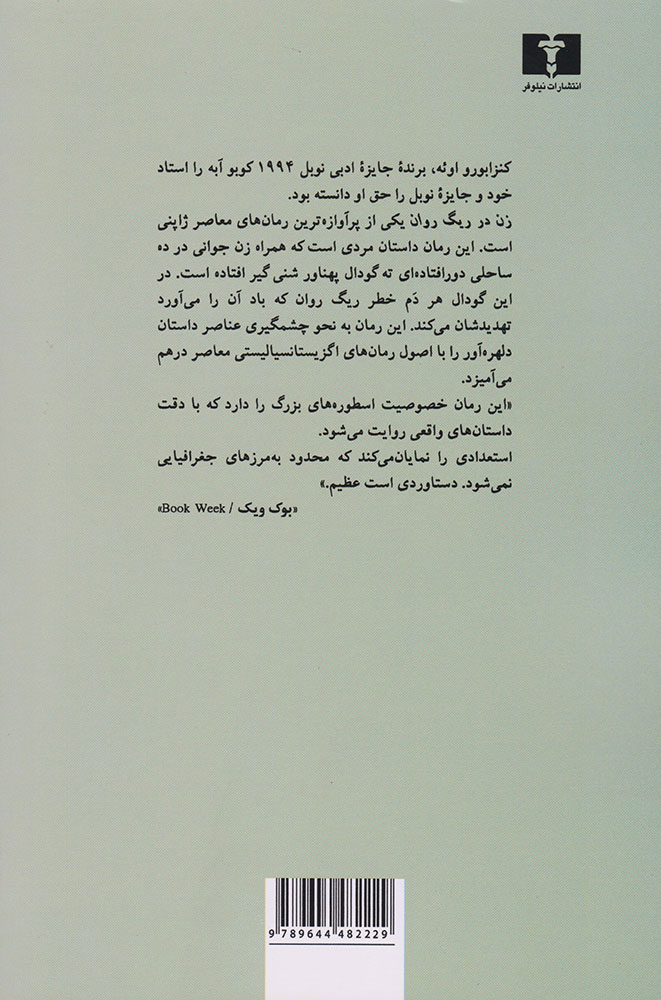 انتشارات نیلوفر
کنزابورو اوئه، برندهٔ جایزهٔ ادبی نوبل ۱۹۹۴ کوبو آبه را استاد
خود و جایزهٔ نوبل را حق او دانسته بود.
زن در ریگ روان یکی از پرآوازه‌ترین رمان‌های معاصر ژاپنی
است. این رمان داستان مردی است که همراه زن جوانی در ده
ساحلی دورافتاده‌ای ته گودال پهناور شنی گیر افتاده است. در
این گودال هر دَم خطر ریگ روان که باد آن را می‌آورد
تهدیدشان می‌کند. این رمان به نحو چشمگیری عناصر داستان
دلهره‌آور را با اصول رمان‌های اگزیستانسیالیستی معاصر درهم
می‌آمیزد.
«این رمان خصوصیت اسطوره‌های بزرگ را دارد که با دقت
داستان‌های واقعی روایت می‌شود.
استعدادی را نمایان‌می‌کند که محدود به‌مرزهای جغرافیایی
نمی‌شود. دستاوردی است عظیم.»
«بوک ویک / Book Week»
9 789644 482229